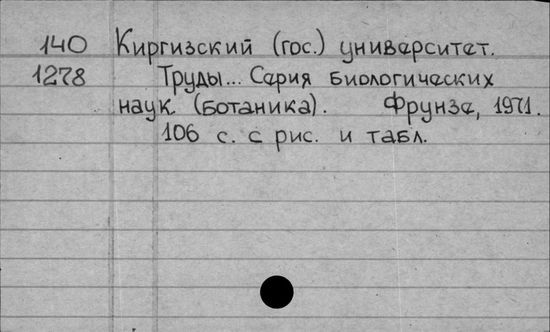 140 Киргизский (гос.) университет.
1278 Труды... Серия биологических
наук (ботаника). Фрунзе, 1971.
106 с. с рис. и табл.